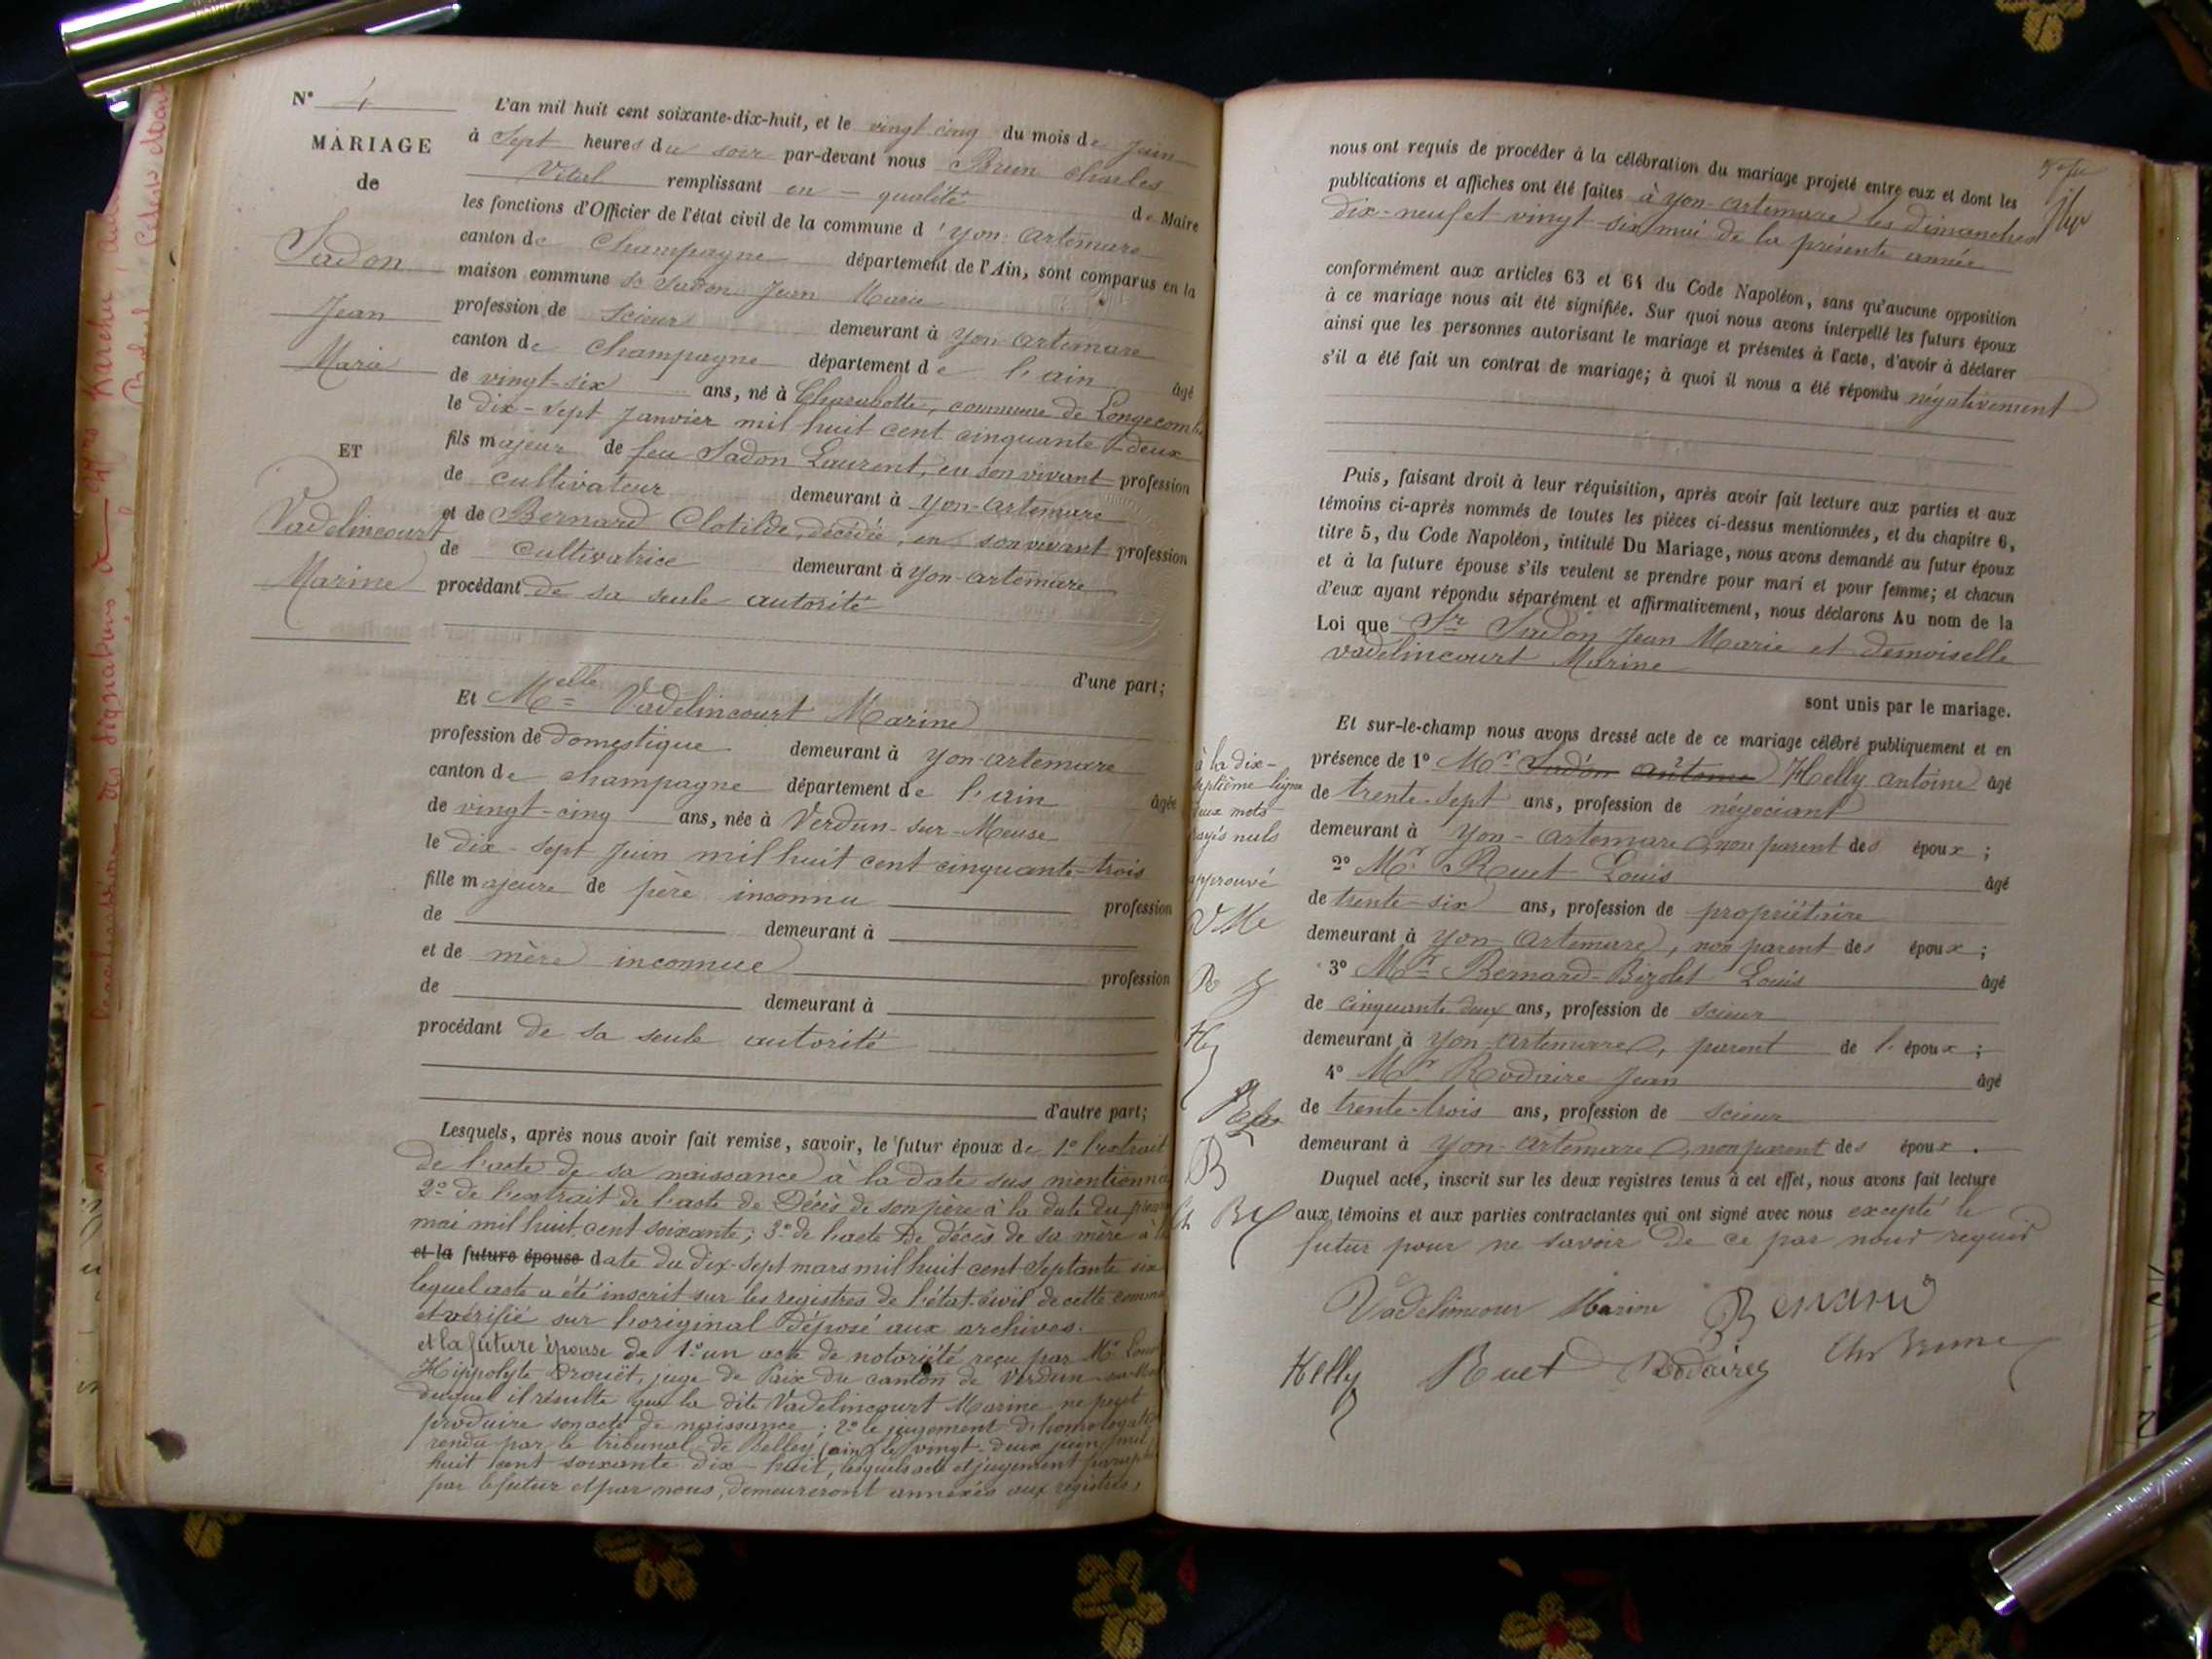 N° 4
MARIAGE
de
Sadon
Jean
Marie
ET
Vadelincourt
Marine
L'an mil huit cent soixante-dix-huit, et le vingt cinq du mois de juin
à Sept heures du soir par-devant nous Brun Charles
Vital remplissant en qualité de Maire
les fonctions d'Officier de l'état civil de la commune d'Yon-Artemare
canton de Champagne département de l'Ain, sont comparus en la
maison commune Sr Sadon Jean Marie
profession de Scieur demeurant à Yon-Artemare
canton de Champagne département de l'ain âgé
de vingt-six ans, né à Charabotte, commune de Longecombe
le Dix-sept Janvier mil huit cent cinquante-deux
fils majeur de feu Sadon Laurent, en son vivant profession
de cultivateur demeurant à Yon-Artemare
et de Bernard Clotilde, décédée, en son vivant profession
de cultivatrice demeurant à Yon-Artemare
procédant de sa seule autorité
d'une part;
Et Melle Vadelincourt Marine
profession de domestique demeurant à Yon-Artemare
canton de Champagne département de l'ain âgée
de vingt-cinq ans, née à Verdun-sur-Meuse
le dix-sept Juin mil huit cent cinquante-trois
fille majeure de père inconnu profession
de demeurant à
et de mère inconnue profession
de demeurant à
procédant de sa seule autorité
d'autre part;
Lesquels, après nous avoir fait remise, savoir, le futur époux de 1° l'extrait
de l'acte de sa naissance à la date sus mentionnée
2° de l'extrait de l'acte de Décès de son père à la date du
mai mil huit cent soixante; 3° de l'acte de décès de sa mère à la
et la future épouse date du dix-sept mars mil huit cent septante six
lequel acte a été inscrit sur les registres de l'état-civil de cette commune
et vérifié sur l'original déposé aux archives.
et la future épouse de 1° un acte de notoriété reçu par Mr Louis
Hippolyte Drouët, juge de Paix du canton de Verdun-sur-Meuse
duquel il résulte que la dite Vadelincourt Marine ne peut
produire son acte de naissance; 2° le jugement d'homologation
rendu par le tribunal de Belley (ain) le vingt-deux juin mil
huit cent soixante dix-huit, lesquels acte et jugement paraphés
par le futur et par nous, demeureront annexés aux registres,
nous ont requis de procéder à la célébration du mariage projeté entre eux et dont les
publications et affiches ont été faites à Yon-Artemare les dimanches
dix-neuf et vingt-six mai de la présente année
conformément aux articles 63 et 64 du Code Napoléon, sans qu'aucune opposition
à ce mariage nous ait été signifiée. Sur quoi nous avons interpellé les futurs époux
ainsi que les personnes autorisant le mariage et présentes à l'acte, d'avoir à déclarer
s'il a été fait un contrat de mariage; à quoi il nous a été répondu négativement
Puis, faisant droit à leur réquisition, après avoir fait lecture aux parties et aux
témoins ci-après nommés de toutes les pièces ci-dessus mentionnées, et du chapitre 6,
titre 5, du Code Napoléon, intitulé Du Mariage, nous avons demandé au futur époux
et à la future épouse s'ils veulent se prendre pour mari et pour femme; et chacun
d'eux ayant répondu séparément et affirmativement, nous déclarons Au nom de la
Loi que Sr Sadon Jean Marie et demoiselle
Vadelincourt Marine
sont unis par le mariage.
Et sur-le-champ nous avons dressé acte de ce mariage célébré publiquement et en
présence de 1° Mr Sadon Antoine Helly Antoine âgé
de trente-sept ans, profession de négociant
demeurant à Yon-Artemare, non parent des époux;
2° Mr Ruet Louis âgé
de trente-six ans, profession de propriétaire
demeurant à Yon-Artemare, non parent des époux;
3° Mr Bernard-Bizolet Louis âgé
de cinquante deux ans, profession de scieur
demeurant à Yon-Artemare, parent de l'époux;
4° Mr Rodaire Jean âgé
de trente-trois ans, profession de scieur
demeurant à Yon-Artemare, non parent des époux.
Duquel acte, inscrit sur les deux registres tenus à cet effet, nous avons fait lecture
aux témoins et aux parties contractantes qui ont signé avec nous excepté le
futur pour ne savoir de ce par nous requis
à la dix-
septième ligne
deux mots
rayés nuls
approuvé
V Me
Vadelincour Marine Bernard
Helly Ruet Rodaire Ch Brun